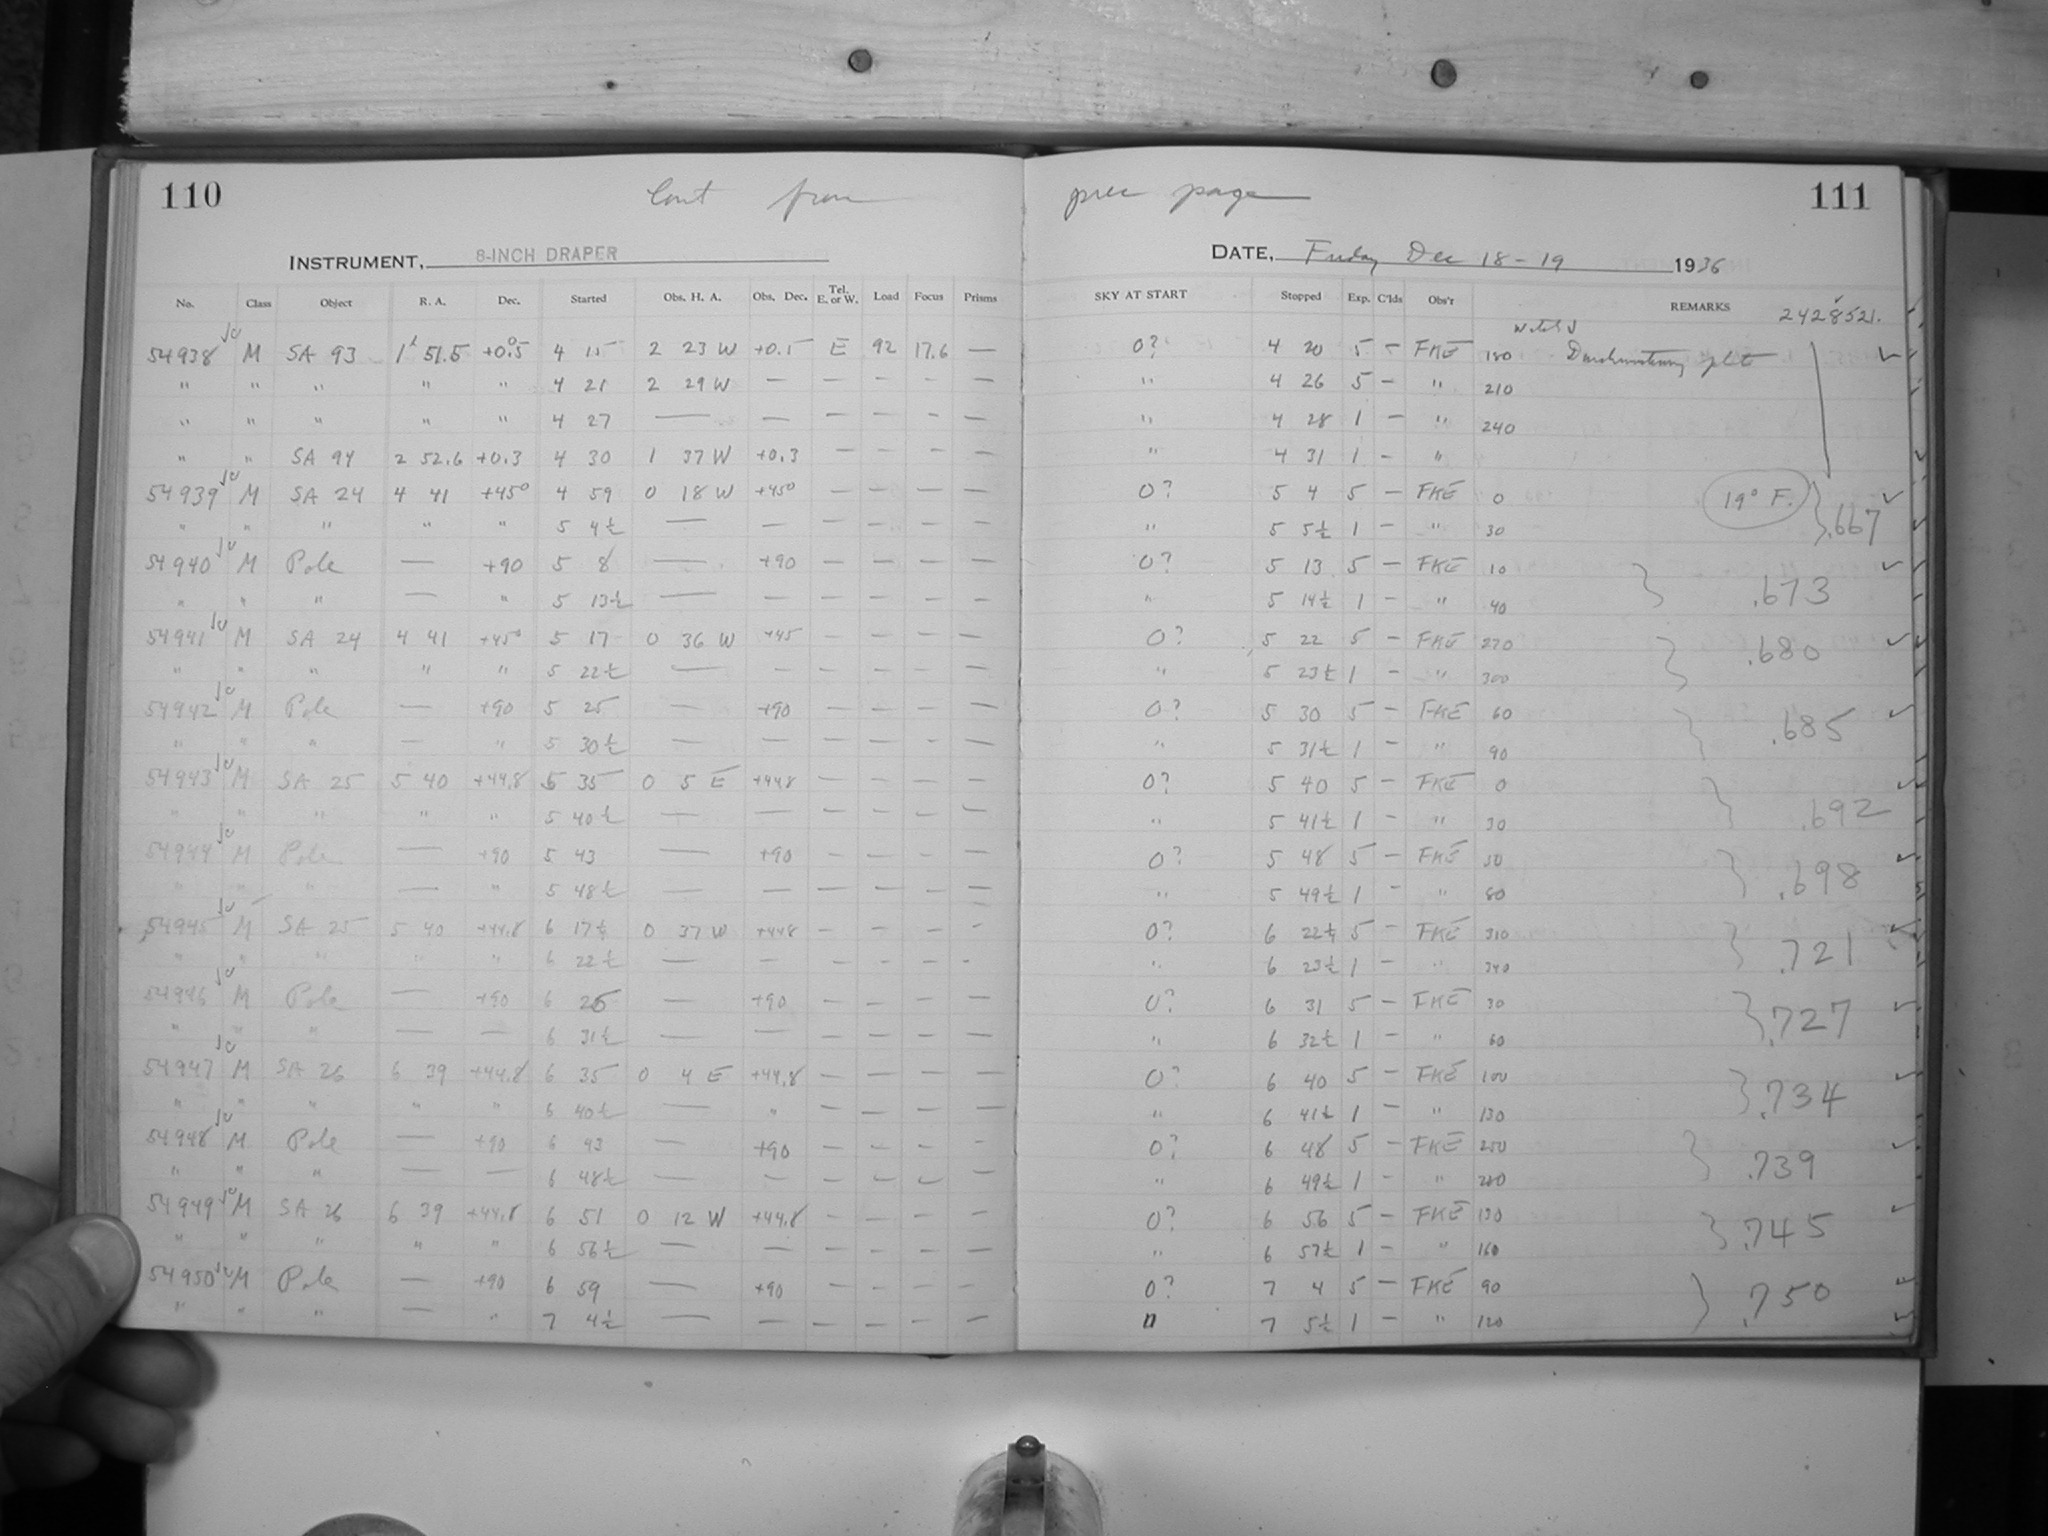 110 Cont from prec page 111
INSTRUMENT, 8-INCH DRAPER DATE, Friday Dec 18-19 1936
No. Class Object R. A. Dec. Started Obs. H. A. Obs. Dec. Tel. E. or W. Load Focus Prisms SKY AT START Stopped Exp. C'lds Obs'r REMARKS
2428521.
54938 M SA 93 1 51.5 +0.5 4 15 2 23 W +0.5 E 92 17.6 — 0? 4 20 5 - FKE 180
" " " " " 4 21 2 29 W — — — — — " 4 26 5 - " 210
" " " " " 4 27 — — — — - — " 4 28 1 — " 240
" " SA 94 2 52.6 +0.3 4 30 1 37 W +0.3 — — — — " 4 31 1 - "
54939 M SA 24 4 41 +45° 4 59 0 18 W +45° — — — — 0? 5 4 5 — FKE 0 19° F.
" " " " " 5 4½ — — — — — — " 5 5½ 1 — " 30 .667
54940 M Pole — +90 5 8 — +90 — — — — 0? 5 13 5 — FKE 10
" " " — " 5 13½ — — — — — — " 5 14½ 1 — " 40 .673
54941 M SA 24 4 41 +45° 5 17 0 36 W +45 — — — — 0? 5 22 5 — FKE 270
" " " " " 5 22½ — — — — — — " 5 23½ 1 - " 300 .680
54942 M Pole — +90 5 25 — +90 — — — — 0? 5 30 5 — FKE 60
" " " — " 5 30½ — — — — - — " 5 31½ 1 - " 90 .685
54943 M SA 25 5 40 +44.8 5 35 0 5 E +44.8 — — — — 0? 5 40 5 — FKE 0
" " " " " 5 40½ — — — — — — " 5 41½ 1 — " 30 .692
54944 M Pole — +90 5 43 — +90 — — — — 0? 5 48 5 — FKE 50
" " " — " 5 48½ — — — — — — " 5 49½ 1 - " 80 .698
54945 M SA 25 5 40 +44.8 6 17½ 0 37 W +44.8 — — — - 0? 6 22½ 5 — FKE 310
" " " " " 6 22½ — — — — — - " 6 23½ 1 — " 340 .721
54946 M Pole — +90 6 26 — +90 — — — — 0? 6 31 5 — FKE 30
" " " — — 6 31½ — — — — — — " 6 32½ 1 — " 60 .727
54947 M SA 26 6 39 +44.8 6 35 0 4 E +44.8 — — — — 0? 6 40 5 — FKE 100
" " " " " 6 40½ — " — — — — " 6 41½ 1 — " 130 .734
54948 M Pole — +90 6 43 — +90 — — — — 0? 6 48 5 — FKE 250
" " " — — 6 48½ — — — — — — " 6 49½ 1 — " 280 .739
54949 M SA 26 6 39 +44.8 6 51 0 12 W +44.8 — — — — 0? 6 56 5 — FKE 130
" " " " " 6 56½ — — — — — — " 6 57½ 1 - " 160 .745
54950 M Pole — +90 6 59 — +90 — — — — 0? 7 4 5 — FKE 90
" " " — " 7 4½ — — — — — — " 7 5½ 1 — " 120 .750